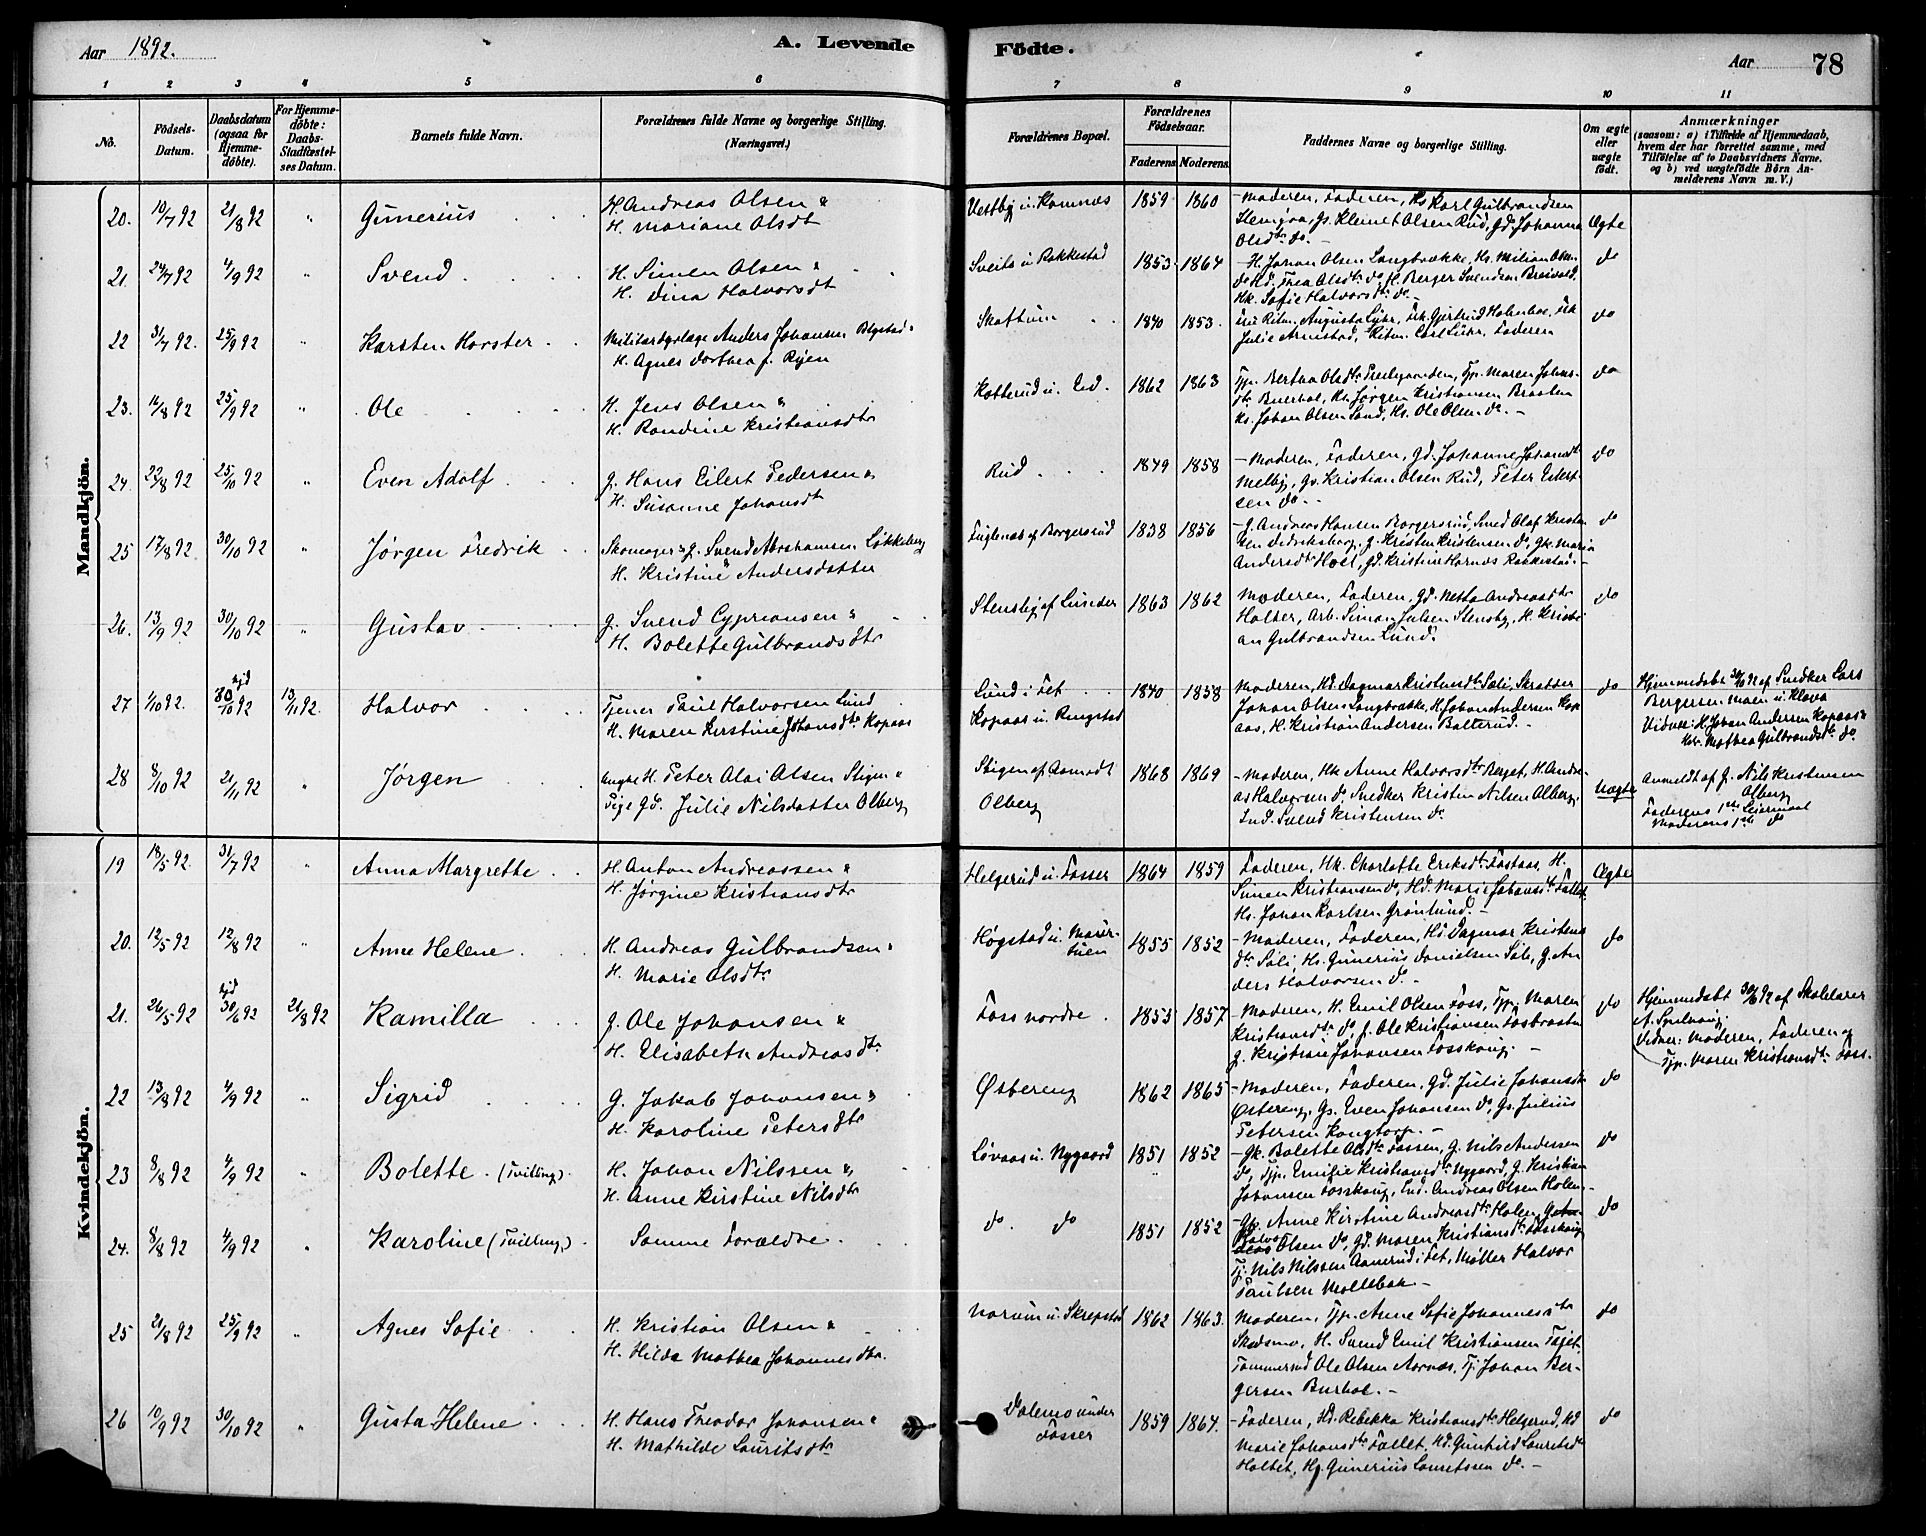 Aar 1892. A. Levende Födte. Aar 78
1 2 3 4 5 6 7 8 9 10 11
No.
Födsels-Datum.
Daabsdatum (ogsaa for Hjemme-döbte).
For Hjemme-döbte: Daabs-Stadfæstel-ses Datum.
Barnets fulde Navn.
Forældrenes fulde Navne og borgerlige Stilling. (Næringsvei.)
Forældrenes Bopæl.
Forældrenes Födselsaar. Faderens. Moderens.
Faddernes Navne og borgerlige Stilling.
Om ægte eller uægte födt.
Anmærkninger (saasom: a) i Tilfælde af Hjemmedaab, hvem der har forrettet samme, med Tilföielse af to Daabsvidners Navne, og b) ved uægtefödte Börn An-melderens Navn m. V.)
Mandkjön.
20. 10/7 92 21/8 92 " Gunerius
H. Andreas Olsen &
H. Mariane Olsdt
Vestby u. Kamnæs 1859 1860
- Moderen, Faderen, Hs Karl Gulbrandsen
Hemyraa, Gs. Klemet Olsen Rud, Gd. Johanna
Olsdtr. do. -
Ægte
21. 24/7 92 4/9 92 " Svend
H. Simen Olsen &
H. Dina Halvorsdt
Sveits u Rakkestad 1853 1864
- H. Johan Olsen Langbrække, Hs. Milian Olsen
do Hd. Thea Olsdtr do, H. Berger Svendsen Breivold,
Hk. Sofie Halvorsdtr do -
do
22 31/7 92. 25/9 92 " Karsten Harster
Militærdyrlæge Anders Johansen Bøgstad &
H. Agnes Dorthea f. Ryen
Skaftum 1840 1853.
Fru Ritm. Augusta Lühr, Frk. Gjertrud Holmboe, Frk
Julie Arnestad, Ritm. Carl Lühr, Faderen
do
23. 16/8 92 25/9 92 " Ole
H. Jens Olsen &
H. Randine Kristiansdtr
Katterud u. Eid. 1862 1863
Tjp. Bertha Olsdtr Prestegaarden, Tjp. Maren Johans-
dtr. Buerhol, Hs. Jørgen Kristiansen Braaten
Hs. Johan Olsen Sand, Hs. Ole Olsen do. -
do
24. 22/8 92 25/10 92 " Even Adolf
g. Hans Eilert Pedersen &
H. Susanne Johansdt
Rud 1849 1858
- Moderen, Faderen, Gd. Johanne Johansdt
Melby, Gs. Kristian Olsen Rud, Peter Eilert-
sen do. -
do
25 17/8 92 30/10 92 " Jørgen Fredrik
Skomager & g. Svend Abrahamsen Løkkeberg
H. Kristine Andersdatter
Fuglenæs af Borgersrud 1838 1856
- g. Andreas Hansen Borgersrud, Smed Olaf Kristen
sen Didriksborg, g. Kristen Kristensen do, Gk. Maria
Andersdtr Hoel, Gd. Kristine Harnæs Rakkestad. -
do
26. 13/9 92 30/10 92 " Gustav
g. Svend Cyprensen &
H. Bolette Gulbrandsdtr
Stensby af Lunder 1863 1862
Moderen, Faderen, Gd. Netta Andreasdtr
Holter, Arb. Simon Julsen Stensby, H. Kristi
an Gulbrandsen Lund.
do
27 1/10 92. hjd 30/10 92 13/11 92. Halvor
Tjener Paul Halvorsen Lund
H. Maren Kirstine Johansdtr Kopaas
Lund i Fet
Kopaas u. Ringstad
1840 1858
Moderen, Hd. Dagmar Kristensdtr Sæli, Skrædder
Johan Olsen Langbrække, H. Johan Andersen Kop
aas, H. Kristian Andersen Balterud. -
do
Hjemmedøbt 30/10 af Snedker Lars
Bergersen Moen u. Kløva
Vidner: H. Johan Andersen Kopaas &
Hk. Mathea Gulbrandsdtr do.
28 8/10 92 21/11 92 " Jørgen
Ungk. H. Peter Olai Olsen Stigen &
Pige Gd. Julie Nilsdatter Olberg
Stigen af Aamodt
Olberg
1868 1869
- Moderen, Hk Anne Halvorsdtr Berget, H. Andre-
as Halvorsen do. Snedker Kristen Nilsen Olberg,
Ind. Svend Kristensen do
Uægte
Anmeldt af g. Nils Kristensen
Olberg
Faderens 1ste Leiermaal
Moderens 1ste do
Kvindekjön.
19 18/5 92. 31/7 92 " Anna Margrethe
H. Anton Andreassen &
H. Jørgine Kristiansdtr
Helgerud u. Fosser 1864 1859
Faderen, Hk. Charlotte Eriksdtr Fostaas, H.
Simen Kristiansen do, Hd. Marie Johansdtr Fallet,
Hs. Johan Karlsen Grønlund. -
Ægte
20. 12/5 92 12/8 92 " Anne Helene
H. Andreas Gulbrandsen &
H. Marie Olsdtr
Høgstad u. Maur-
tuen
1855 1852
- Moderen, Faderen, Hd. Dagmar Kristens
dtr Sæli, Hs. Gunerius Danielsen Sæli, g. An
ders Halvorsen do. -
do
21. 26/5 92 hjd 30/6 92 21/8 92 Kamilla
g. Ole Johansen &
H. Elisabeth Andreasdtr
Foss nordre 1853 1857
- Moderen, H. Emil Olsen Foss, Tjp. Maren
Kristiansdtr do, f. Ole Kristiansen Fosbraaten
g. Kristian Johansen Fosskaug. -
do
Hjemmedøbt 30/6 92 af Skolelærer
A. Spelhaug
Vidner: Moderen, Faderen og
Tjp. Maren Kristiansdtr Foss.
22 13/8 92 4/9 92 " Sigrid
g. Jakob Johansen &
H. Karoline Petersdtr
Østereng 1862 1865
- Moderen, Faderen, Gd. Julie Johansdtr
Østereng, Gs. Even Johansen do, Gs. Julius
Petersen Kongtorp. -
do
23 8/8 92 4/9 92 " Bolette (Tvilling)
H. Johan Nilssen &
H. Anne Kirstine Nilsdtr
Løvaas u. Nygaard 1851 1852
- Gk. Bolette Olsdtr Fossen, g. Nils Andersen
do, Tjp. Emilie Kristiansdtr Nygaard, g. Kristian
Johansen Fosskaug, Ind. Andreas Olsen Holen -
do
24. 8/8 92 4/9 92 " Karoline (Tvilling)
Samme Forældre.
do. do 1851 1852
- Gp. Anne Kirstine Andreasdtr Holen,
Olsen do, Gd. Maren Kristiansdtr Fosskaug
Tj. Nils Nilssen Aamrud i Fet, Møller Halvor
Paulsen Mollebak. -
do
25 21/8 92 25/9 92 " Agnes Sofie
H. Kristian Olsen &
H. Hilda Mathea Johannesdtr.
Norum u. Skrepstad 1862 1863.
Moderen, Tjp. Anne Sofie Johannesdtr
Skedsmo, H. Svend Emil Kristiansen Fajet,
Tømmermd Ole Olsen Aarnæs, Tj. Johan Ber-
gersen Burhol. -
do
26 10/9 92 30/10 92 " Gusta Helene
H. Hans Theodor Johansen &
H. Mathilde Lauritsdtr
Dalemo under
Fosser
1859 1864.
- Faderen, Hd. Rebekka Kristiansdtr Helgerud, Hd
Marie Johansdtr Fallet, Hd. Gunhild Lauritsdtr
Holtet, Hg. Gunerius Lauritssen do. -
do